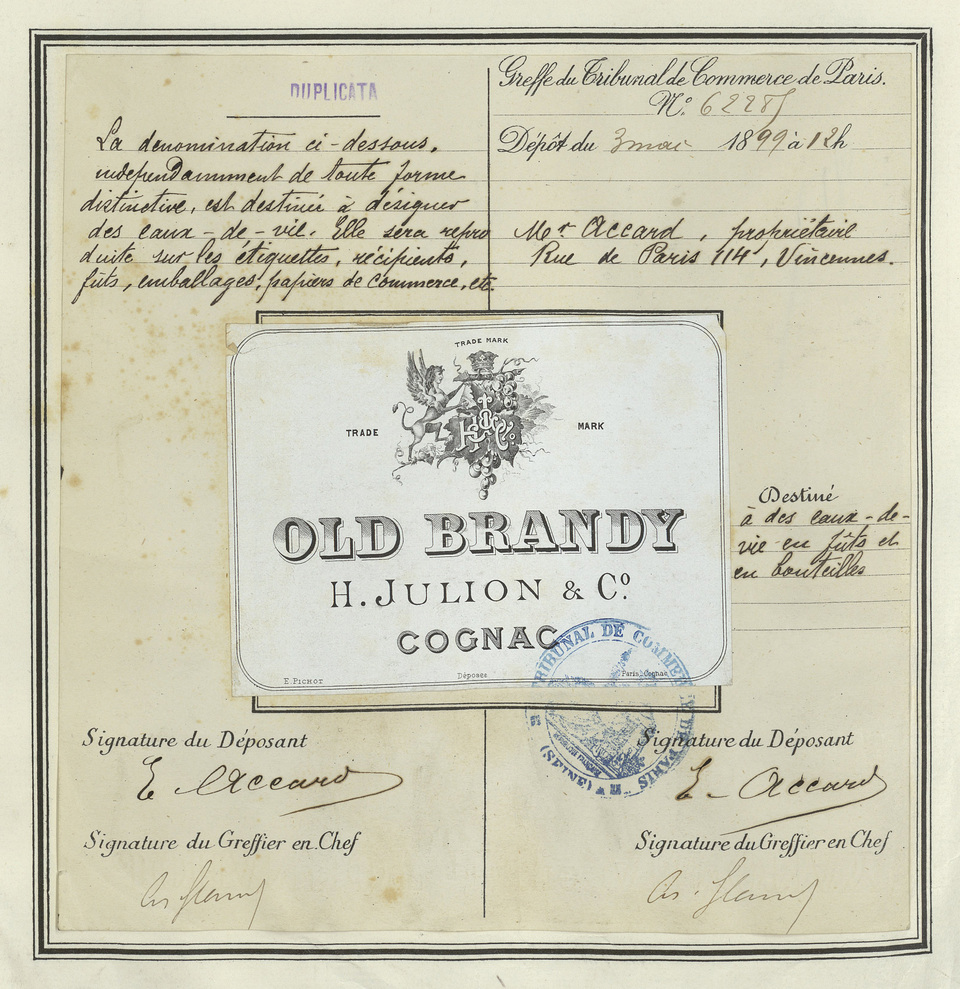 DUPLICATA
La denomination ci-dessous,
independamment de toute forme
distinctive, est destinée à désigner
des eaux-de-vie. Elle sera repro
duite sur les étiquettes, récipients,
fûts, emballages, papiers de commerce, etc.
Greffe du Tribunal de Commerce de Paris.
N°. 62285
Dépôt du 3 mai 1899 à 12h
Mr Accard, propriétaire
Rue de Paris 114, Vincennes.
TRADE MARK
TRADE MARK
OLD BRANDY
H. JULION & Co.
COGNAC
E. PICHOT
Déposé
Paris, Cognac
Destiné
à des eaux-de-
vie en fûts et
en bouteilles
TRIBUNAL DE COMMERCE DE PARIS
(SEINE)
Signature du Déposant
E Accard
Signature du Greffier en Chef
Signature du Déposant
E. Accard
Signature du Greffier en Chef